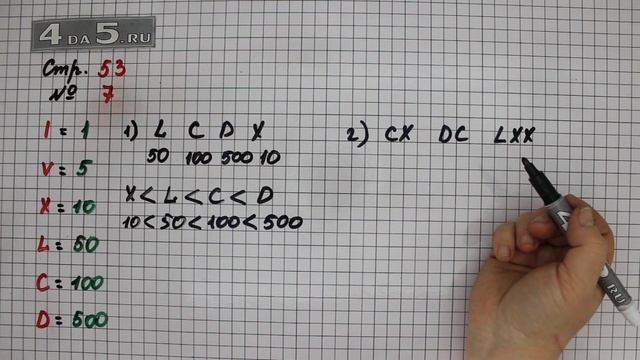 4 DA 5.RU
Стр. 53
№ 7
I = 1
V = 5
X = 10
L = 50
C = 100
D = 500
1) L C D X
50 100 500 10
X < L < C < D
10 < 50 < 100 < 500
2) CX DC LXX